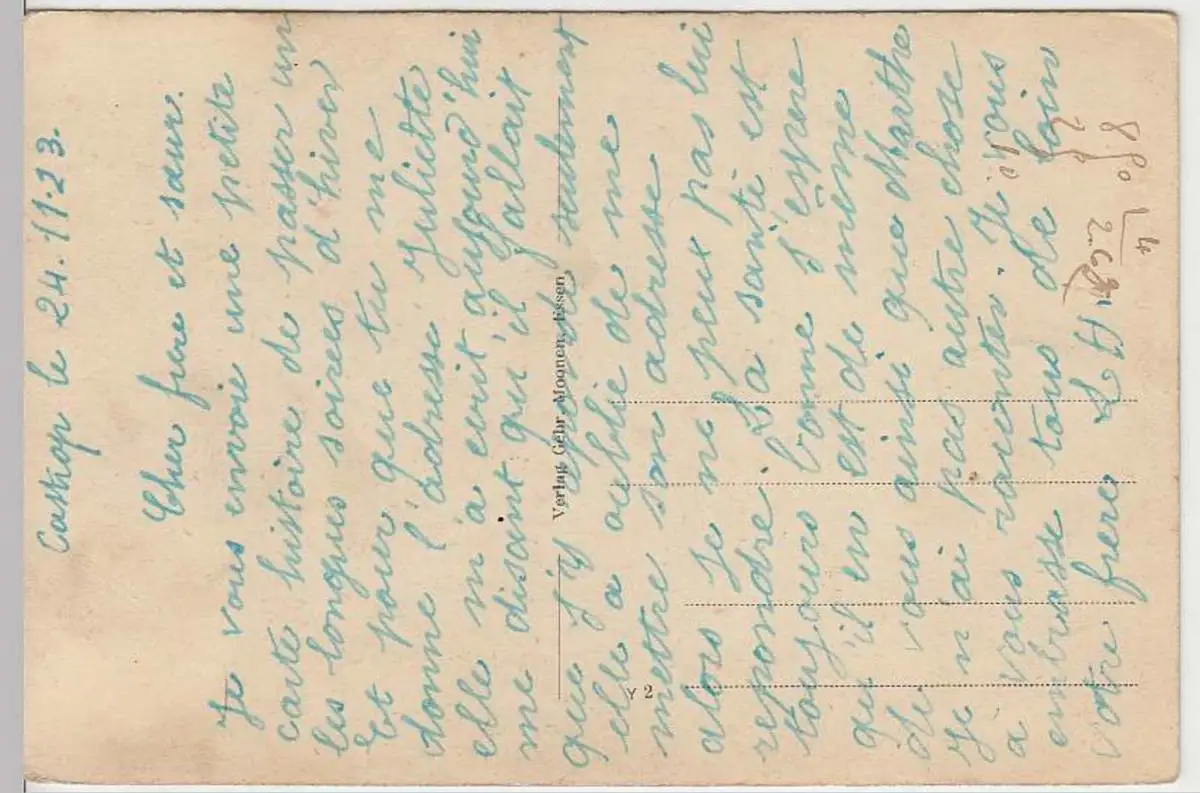 Castrop le 24.11.23.
Cher frère et sœur.
Je vous envoie une petite
carte histoire de passer un
les longues soirées d'hiver
Et pour que tu me
donne l'adresse Juliette
elle m'a ecrit aujourd'hui
me disant qu'il fallait
que j'y reponde seulement
elle a oublié de me
mettre son adresse
alors Je ne peux pas lui
repondre. La santé est
toujours bonne J'espere
qu'il en est de meme
de vous ainsi que Marthe
Je n'ai pas autre chose
a vous raconter. Je vous
embrasse tous de loin
votre frere L H
Verlag Gebr. Moonen, Essen
Y 2
8.50
4